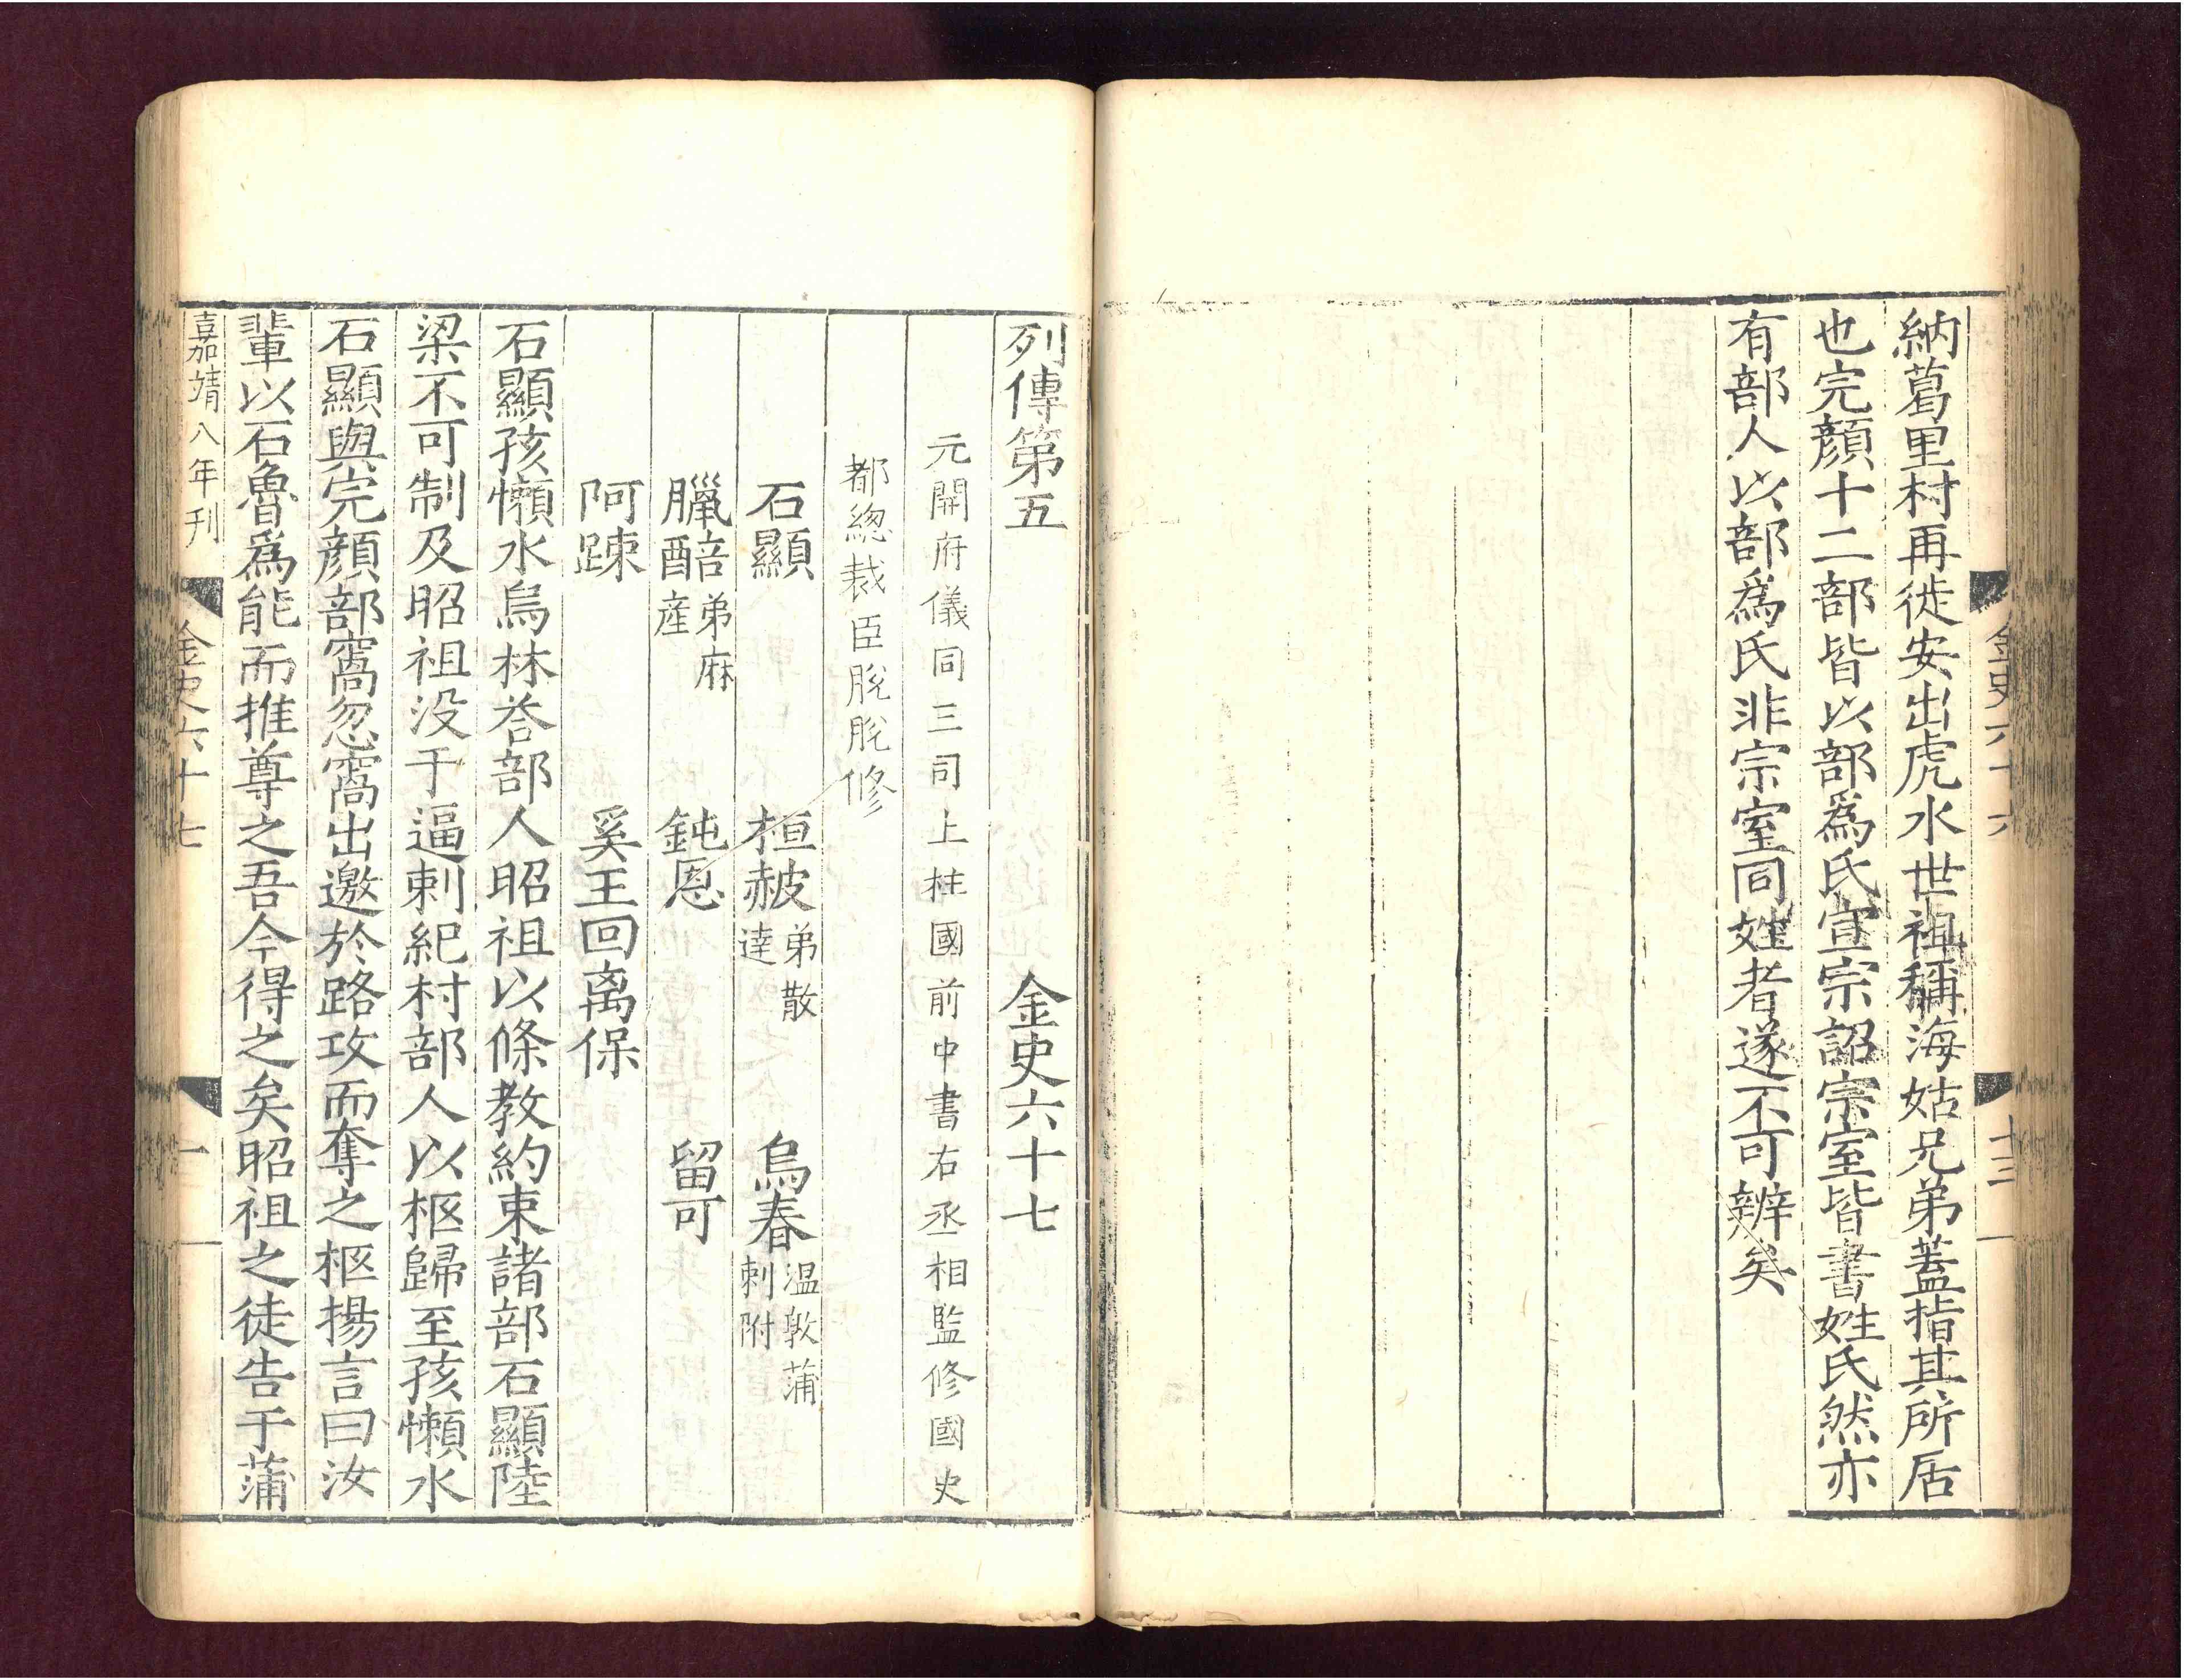 金史六十六
十三
納葛里村再徙安出虎水世祖稱海姑兄弟蓋指其所居
也完顔十二部皆以部爲氏宣宗詔宗室皆書姓氏然亦
有部人以部爲氏非宗室同姓者遂不可辨矣
列傳第五 金史六十七
元開府儀同三司上柱國前中書右丞相監修國史
都緫裁臣脫脫修
石顯 桓赧弟散達 烏春温敦蒲刺附
臘醅弟麻産 鈍恩 留可
阿踈 奚王回离保
石顯孩懶水烏林荅部人昭祖以條教約束諸部石顯陸
梁不可制及昭祖没于逼剌紀村部人以柩歸至孩懶水
石顯與完顔部窩忽窩出邀於路攻而奪之柩揚言曰汝
輩以石魯爲能而推尊之吾今得之矣昭祖之徒告于蒲
嘉靖八年刊
金史六十七
一